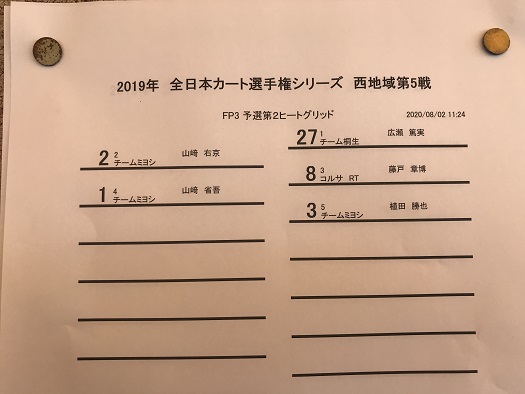 2019年 全日本カート選手権シリーズ 西地域第5戦
FP3 予選第2ヒートグリッド
2020/08/02 11:24
27 1 チーム桐生 広瀬 篤実
2 2 チームミヨシ 山﨑 右京
8 3 コルサ RT 藤戸 章博
1 4 チームミヨシ 山﨑 省吾
3 5 チームミヨシ 植田 勝也